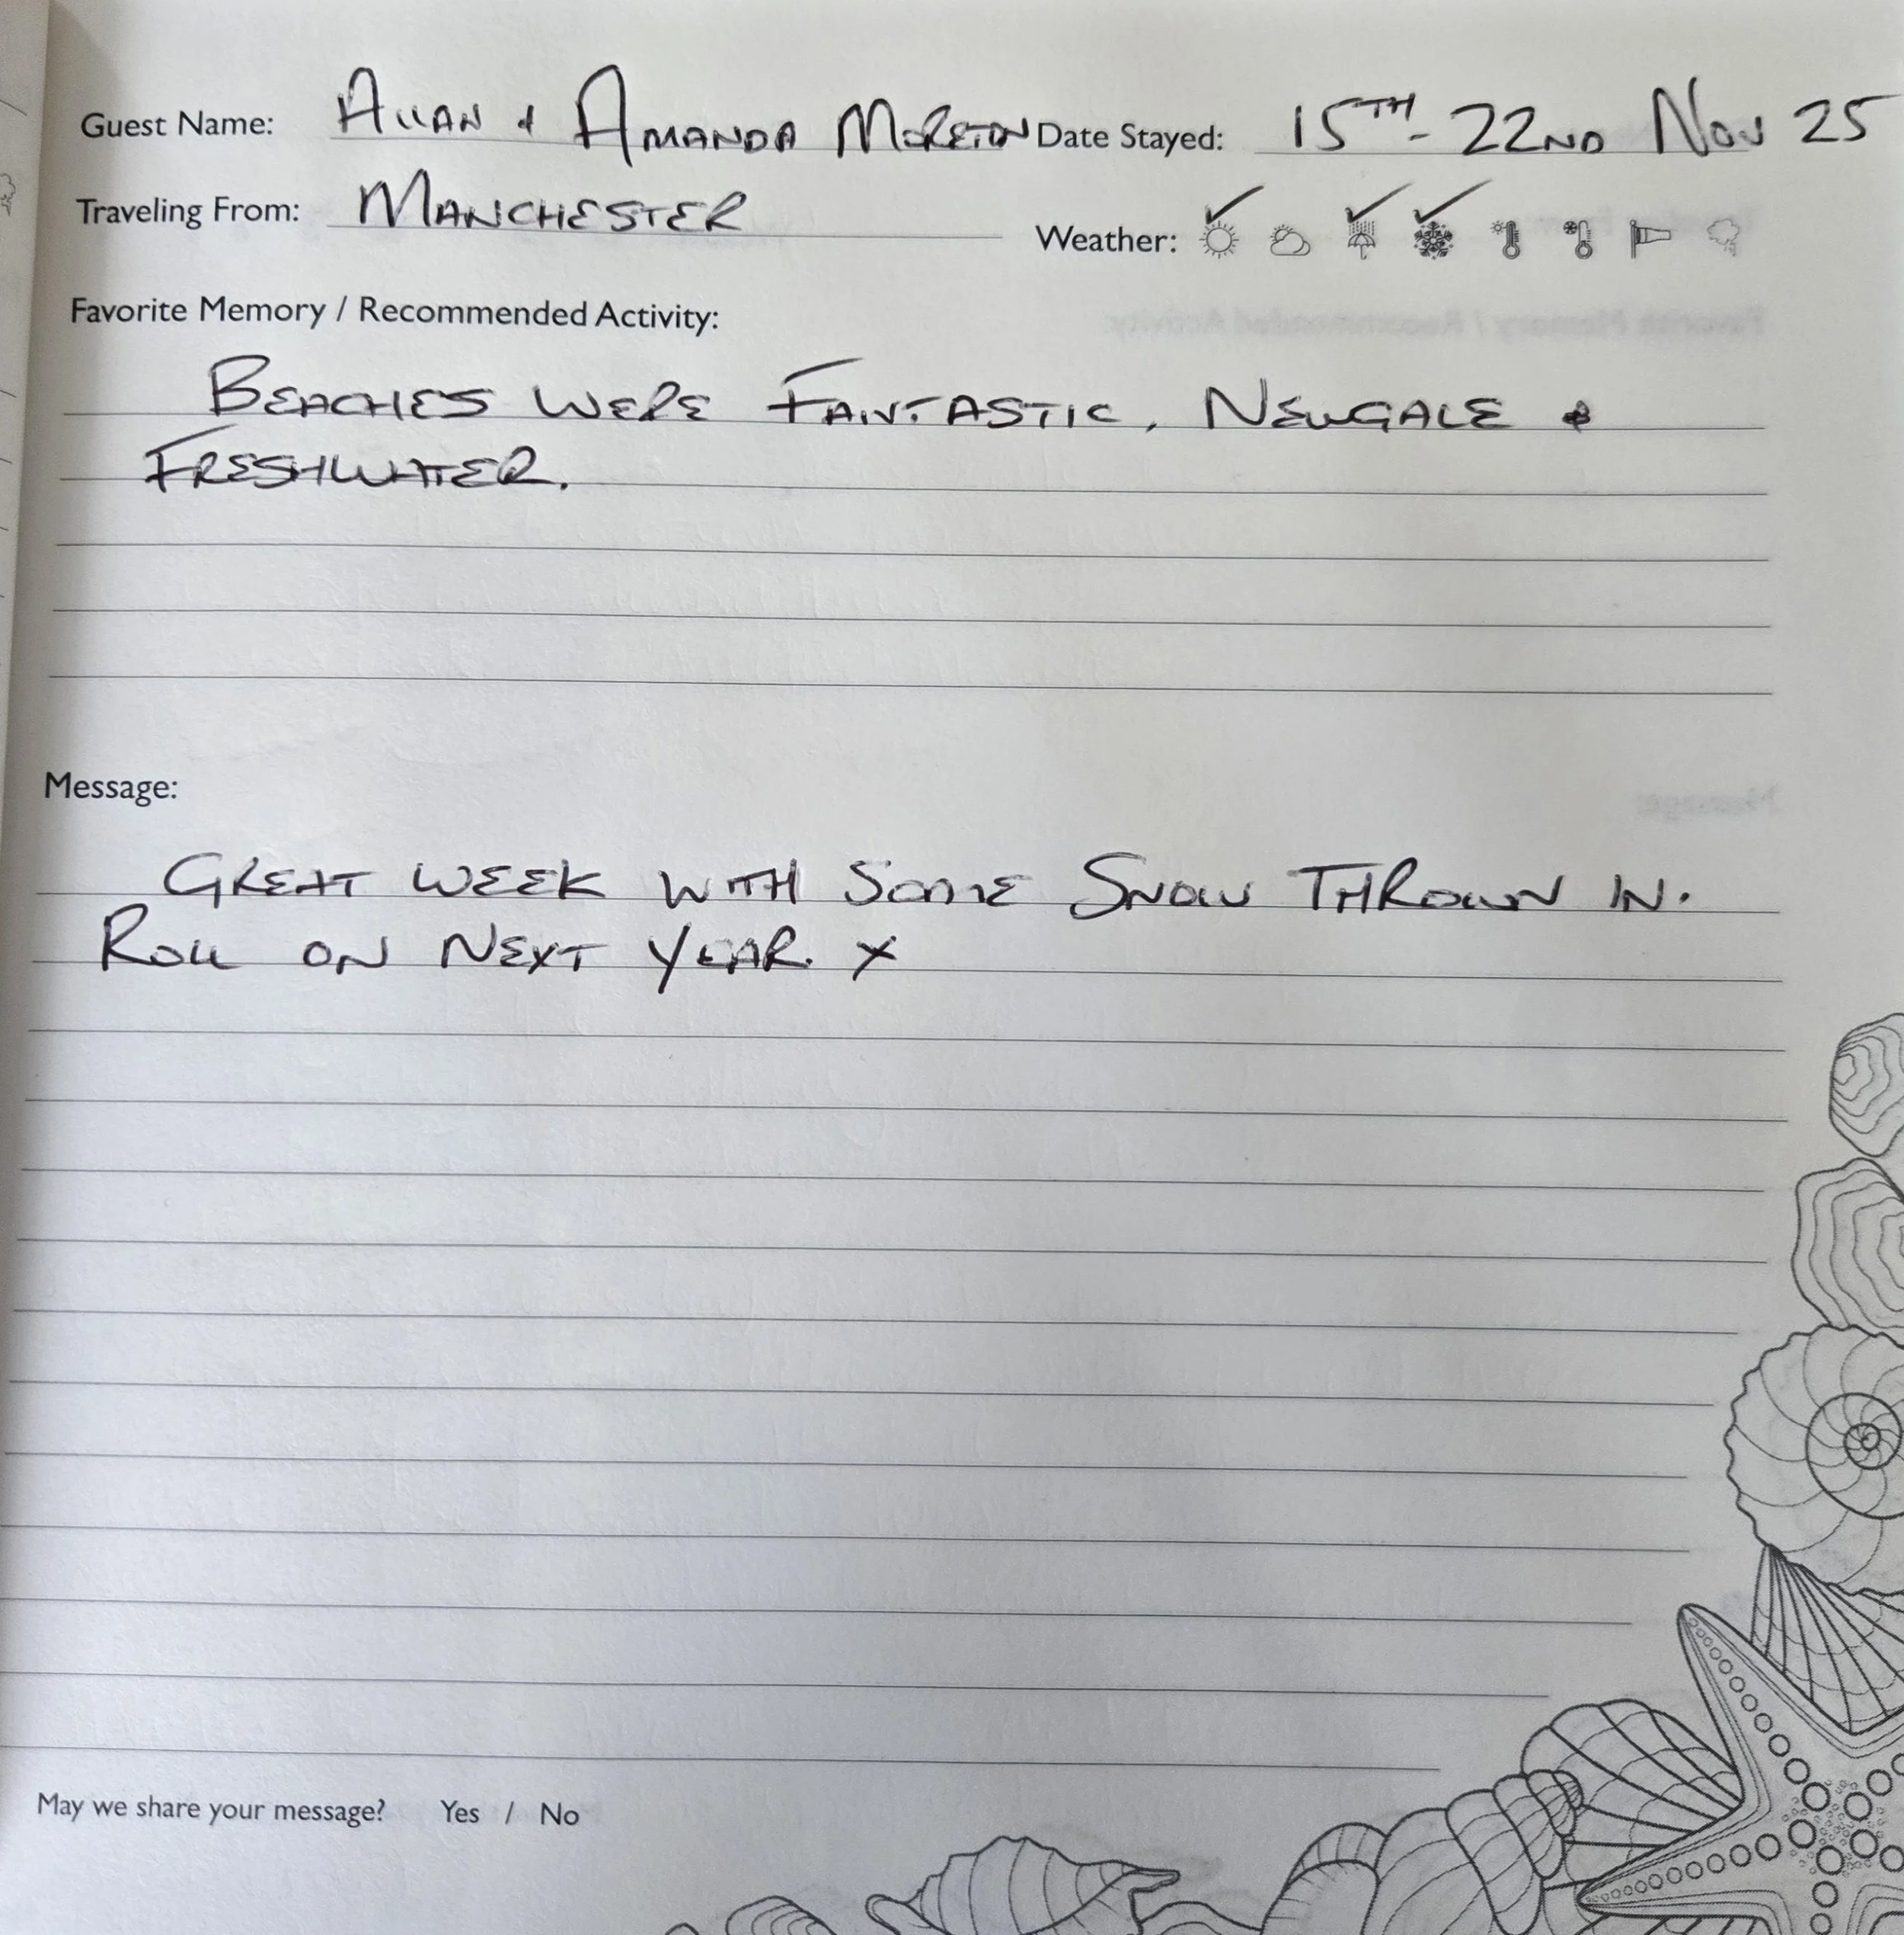 Guest Name: ALLAN + AMANDA MORETON Date Stayed: 15TH - 22ND NOV 25
Traveling From: MANCHESTER
Weather:
Favorite Memory / Recommended Activity:
BEACHES WERE FANTASTIC, NEWGALE &
FRESHWATER.
Message:
GREAT WEEK WITH SOME SNOW THROWN IN.
ROLL ON NEXT YEAR. X
May we share your message? Yes / No